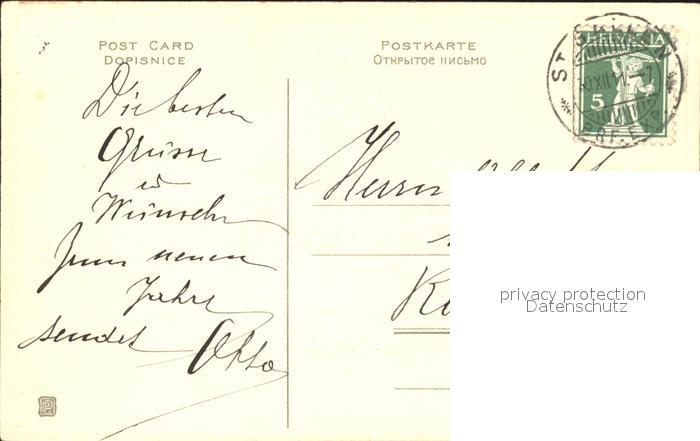 POST CARD
DOPISNICE
POSTKARTE
Открытое письмо
HELVETIA
5
ST. GALLEN
30.XII.11.-7
BRF. EXP.
Die besten
Grüsse
u
Wünsche
zum neuen
Jahre
sendet Otto
Herrn
privacy protection
Datenschutz